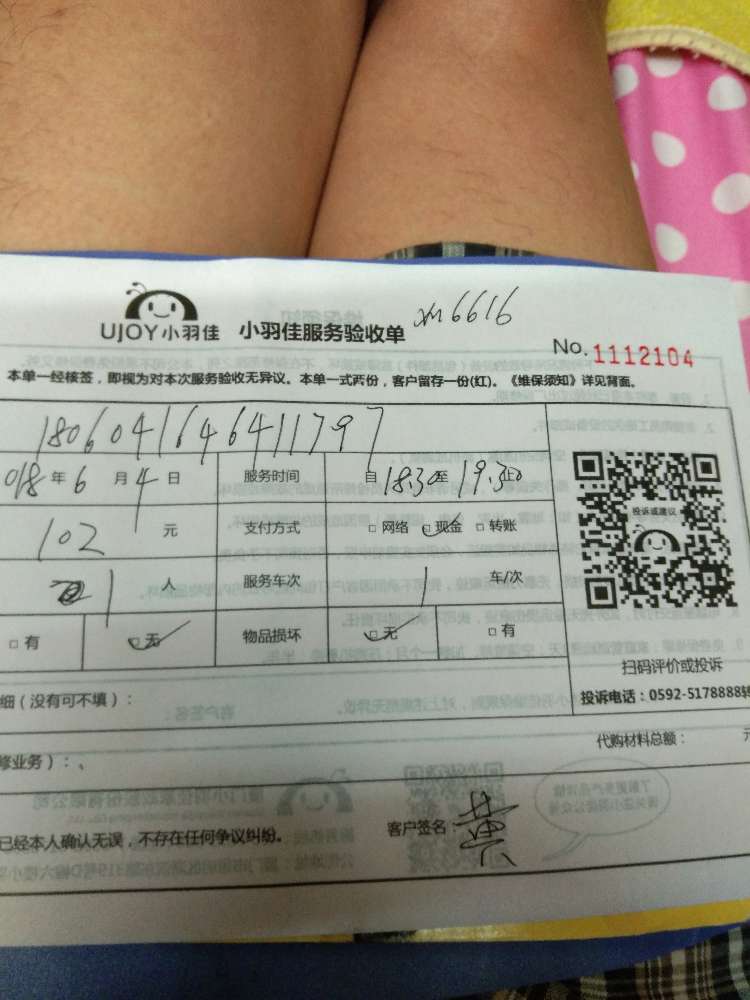 UJOY小羽佳 小羽佳服务验收单 6616
No. 1112104
本单一经核签，即视为对本次服务验收无异议。本单一式两份，客户留存一份(红)。《维保须知》详见背面。
1806041646411797
018年6月4日 服务时间 自18:30至19:30止
102元 支付方式 □网络 □现金 □转账
1人 服务车次 1车/次
□有 □无 物品损坏 □无 □有
投诉或建议
扫码评价或投诉
投诉电话：0592-5178888转
细（没有可不填）：
代购材料总额： 元
修业务）：、
已经本人确认无误，不存在任何争议纠纷。 客户签名：黄